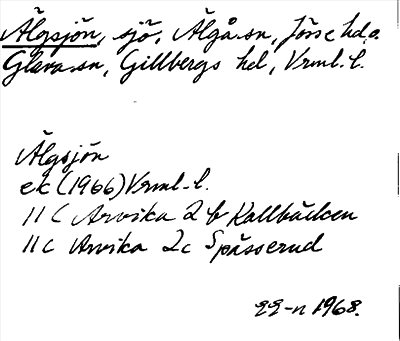 Älgsjön, sjö, Älgå sn, Jösse hd o.
Glava sn, Gillbergs hd, Vrml. l.
Älgsjön
ek (1966) Vrml. l.
11 C Arvika 2 b Kallbäcken
11 c Arvika 2c Spässerud
22-n 1968.